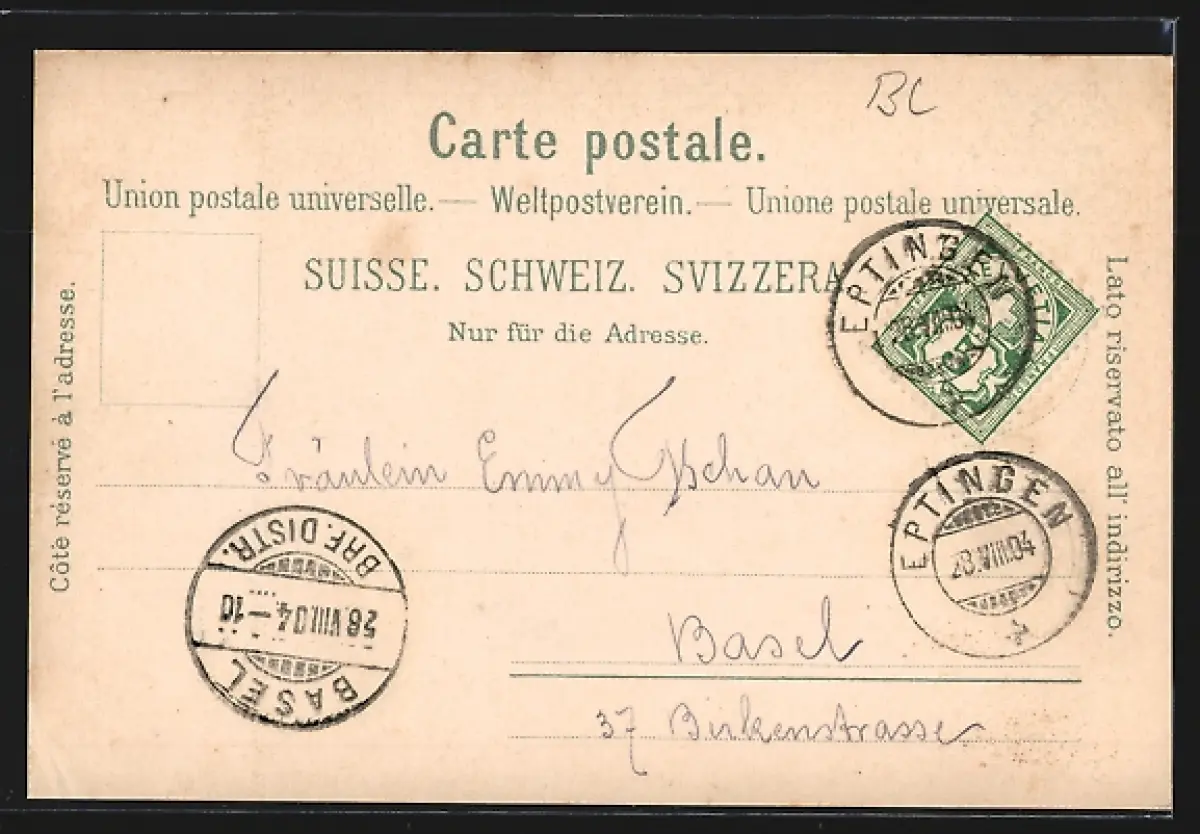 BC
Carte postale.
Union postale universelle. — Weltpostverein. — Unione postale universale.
SUISSE. SCHWEIZ. SVIZZERA
Nur für die Adresse.
Côté réservé à l'adresse.
Lato riservato all' indirizzo.
EPTINGEN
FRANCO HELVETIA FRANCO
EPTINGEN
28.VIII.04
Fräulein Emmy Tschan
Basel
37 Birkenstrasse
BRF. DISTR.
28.VIII.04.–10
BASEL